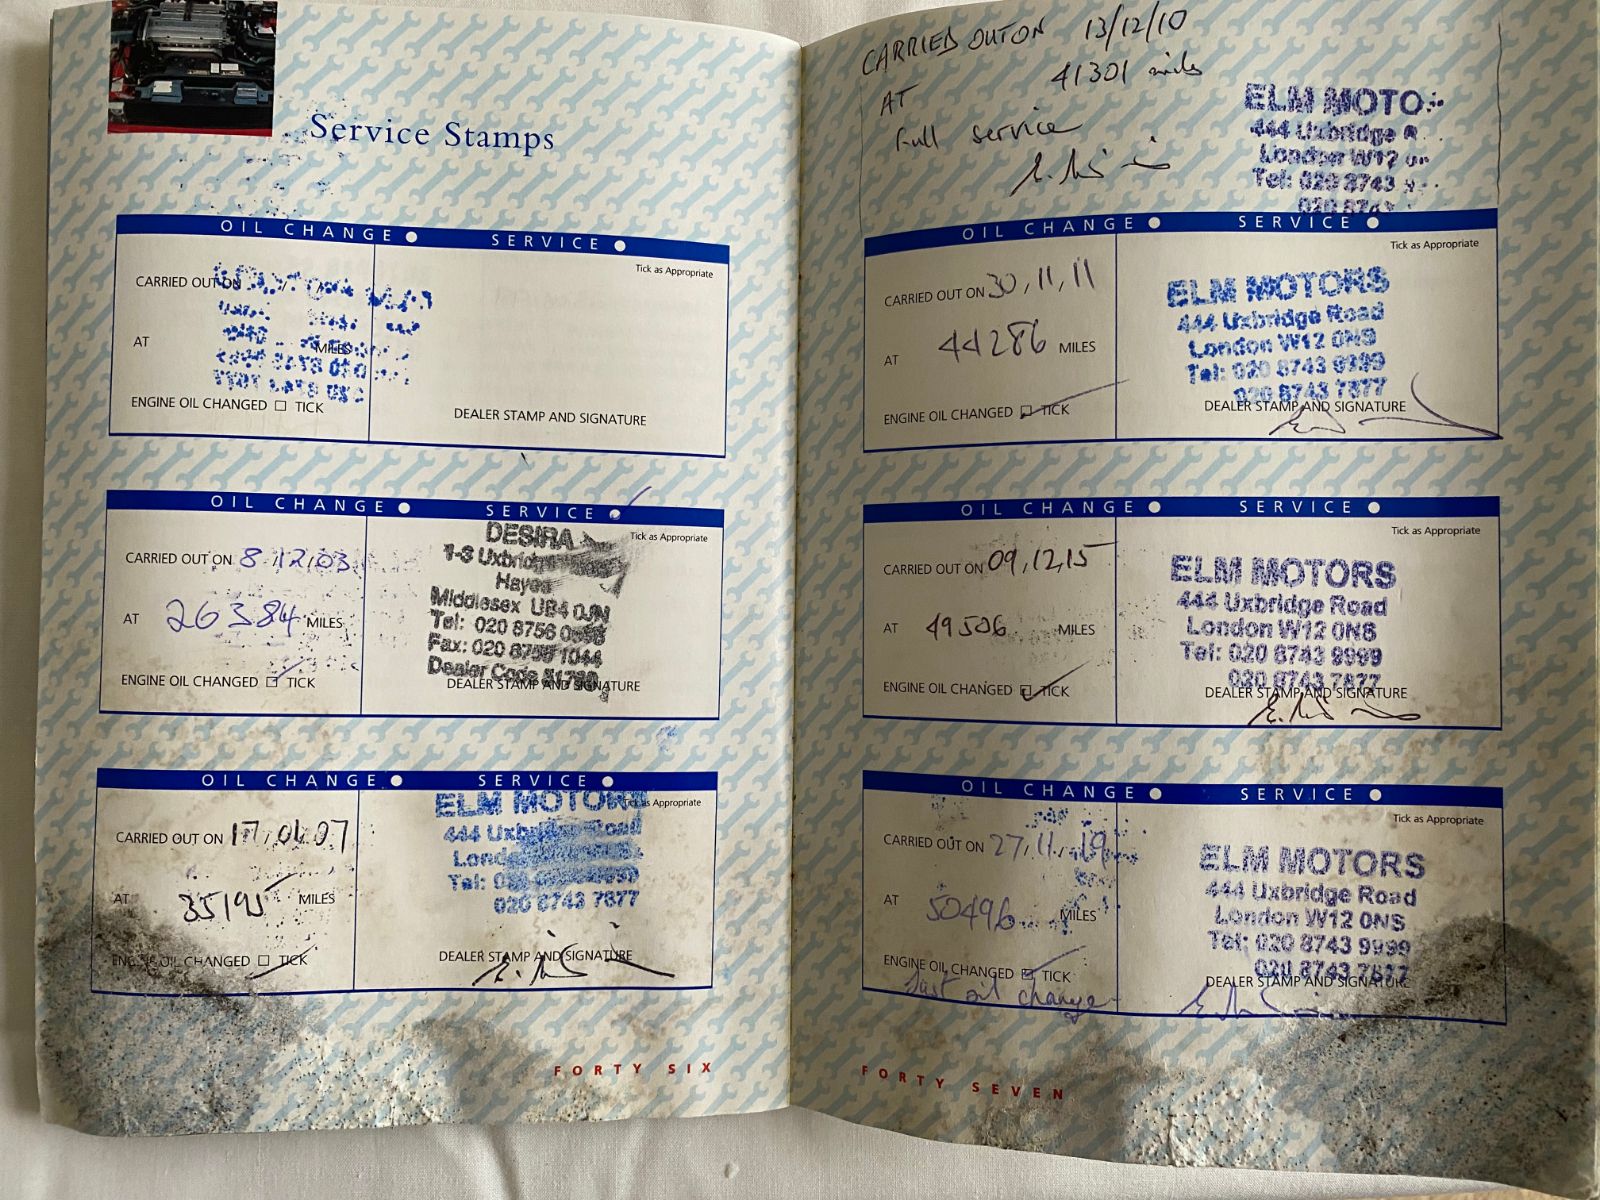 Service Stamps
OIL CHANGE SERVICE
Tick as Appropriate
CARRIED OUT ON
AT MILES
ENGINE OIL CHANGED TICK
DEALER STAMP AND SIGNATURE
OIL CHANGE SERVICE
Tick as Appropriate
CARRIED OUT ON 8 12 03
AT 26384 MILES
ENGINE OIL CHANGED TICK
DESIRA
1-3 Uxbridge
Hayes
Middlesex UB4 0JN
Tel: 020 8756
Fax: 020 8756 1044
Dealer Code
DEALER STAMP AND SIGNATURE
OIL CHANGE SERVICE
Tick as Appropriate
CARRIED OUT ON 17.01.07
AT 35195 MILES
ENGINE OIL CHANGED TICK
ELM MOTORS
444 Uxbridge Road
London
Tel: 020 9999
020 8743 7877
DEALER STAMP AND SIGNATURE
FORTY SIX
CARRIED OUT ON 13/12/10
AT 41301 miles
Full service
ELM MOTO
444 Uxbridge R
London W12
Tel: 020 8743
020 874
OIL CHANGE SERVICE
Tick as Appropriate
CARRIED OUT ON 30,11,11
AT 44286 MILES
ENGINE OIL CHANGED TICK
ELM MOTORS
444 Uxbridge Road
London W12 0NS
Tel: 020 8743 9999
020 8743 7877
DEALER STAMP AND SIGNATURE
OIL CHANGE SERVICE
Tick as Appropriate
CARRIED OUT ON 09,12,15
AT 49506 MILES
ENGINE OIL CHANGED TICK
ELM MOTORS
444 Uxbridge Road
London W12 0NS
Tel: 020 8743 9999
020 8743 7877
DEALER STAMP AND SIGNATURE
OIL CHANGE SERVICE
Tick as Appropriate
CARRIED OUT ON 27,11,19
AT 50496 MILES
ENGINE OIL CHANGED TICK
Just oil change
ELM MOTORS
444 Uxbridge Road
London W12 0NS
Tel: 020 8743 9999
020 8743 7877
DEALER STAMP AND SIGNATURE
FORTY SEVEN